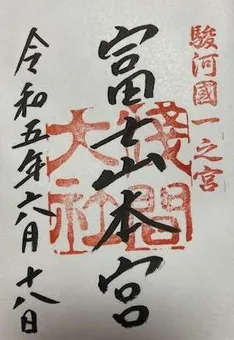 駿河國一之宮
富士山本宮
淺間大社
令和五年六月十八日